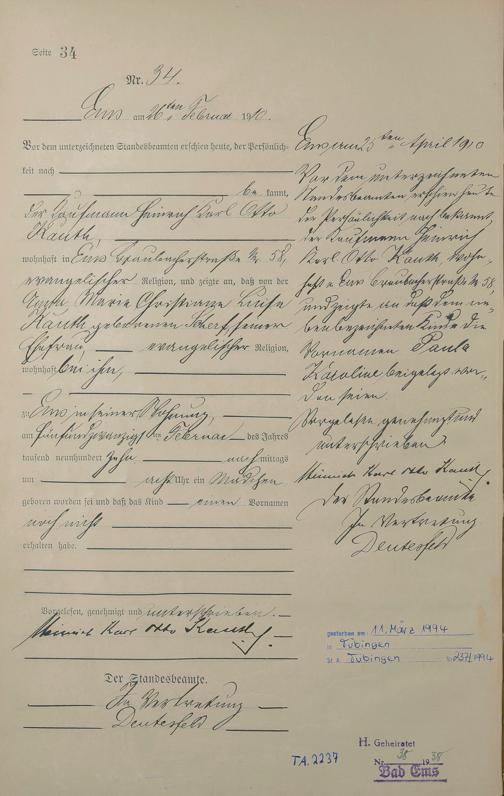 Seite 34
Nr. 34.
Ems am 26ten Februar 1910.
Vor dem unterzeichneten Standesbeamten erschien heute, der Persönlich-
keit nach
be kannt,
der Kaufmann Heinrich Karl Otto
Kauth,
wohnhaft in Ems Braubacherstraße Nr. 58,
evangelischer Religion, und zeigte an, daß von der
Marie Christiane Luise
Kauth geborenen seiner
Ehefrau, evangelischer Religion,
wohnhaft bei ihm,
zu Ems in seiner Wohnung,
am fünfundzwanzigsten Februar des Jahres
tausend neunhundert zehn nachmittags
um acht Uhr ein Mädchen
geboren worden sei und daß das Kind einen Vornamen
noch nicht
erhalten habe.
Vorgelesen, genehmigt und unterschrieben.
Heinrich Karl Otto Kauth
Der Standesbeamte.
In Vertretung
Deutesfeld
Ems am 23ten April 1910
Vor dem unterzeichneten
Standesbeamten erschien heute
der Persönlichkeit nach bekannt,
der Kaufmann Heinrich
Karl Otto Kauth, wohn-
haft in Ems Braubacherstraße Nr. 58,
und zeigte an daß dem ne-
ben bezeichneten Kinde die
Vornamen Paula
Karoline beigelegt wor-
den seien.
Vorgelesen, genehmigt und
unterschrieben
Heinrich Karl Otto Kauth
Der Standesbeamte
In Vertretung
Deutesfeld
gestorben am 11. März 1994
in Tübingen
St.A. Tübingen Nr. 237/1994
H. Geheiratet
Nr. 38 1938
Bad Ems
T.A. 2237